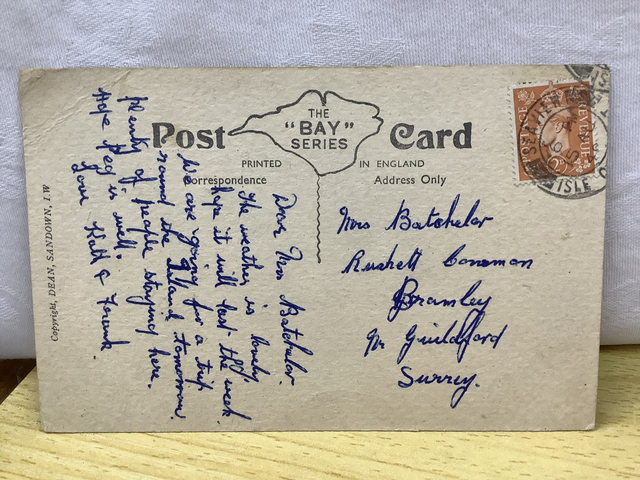 Post Card
THE
"BAY"
SERIES
PRINTED IN ENGLAND
Correspondence Address Only
Dear Mrs Batchelor.
The weather is lovely
hope it will last the week.
We are going for a trip
round the Island tomorrow.
plenty of people staying here.
Hope Reg is well.
Your Kath & Frank.
Mrs Batchelor
Rushett Common
Bramley
Nr Guildford
Surrey.
Copyright, DEAN, SANDOWN, I.W
ISLE O